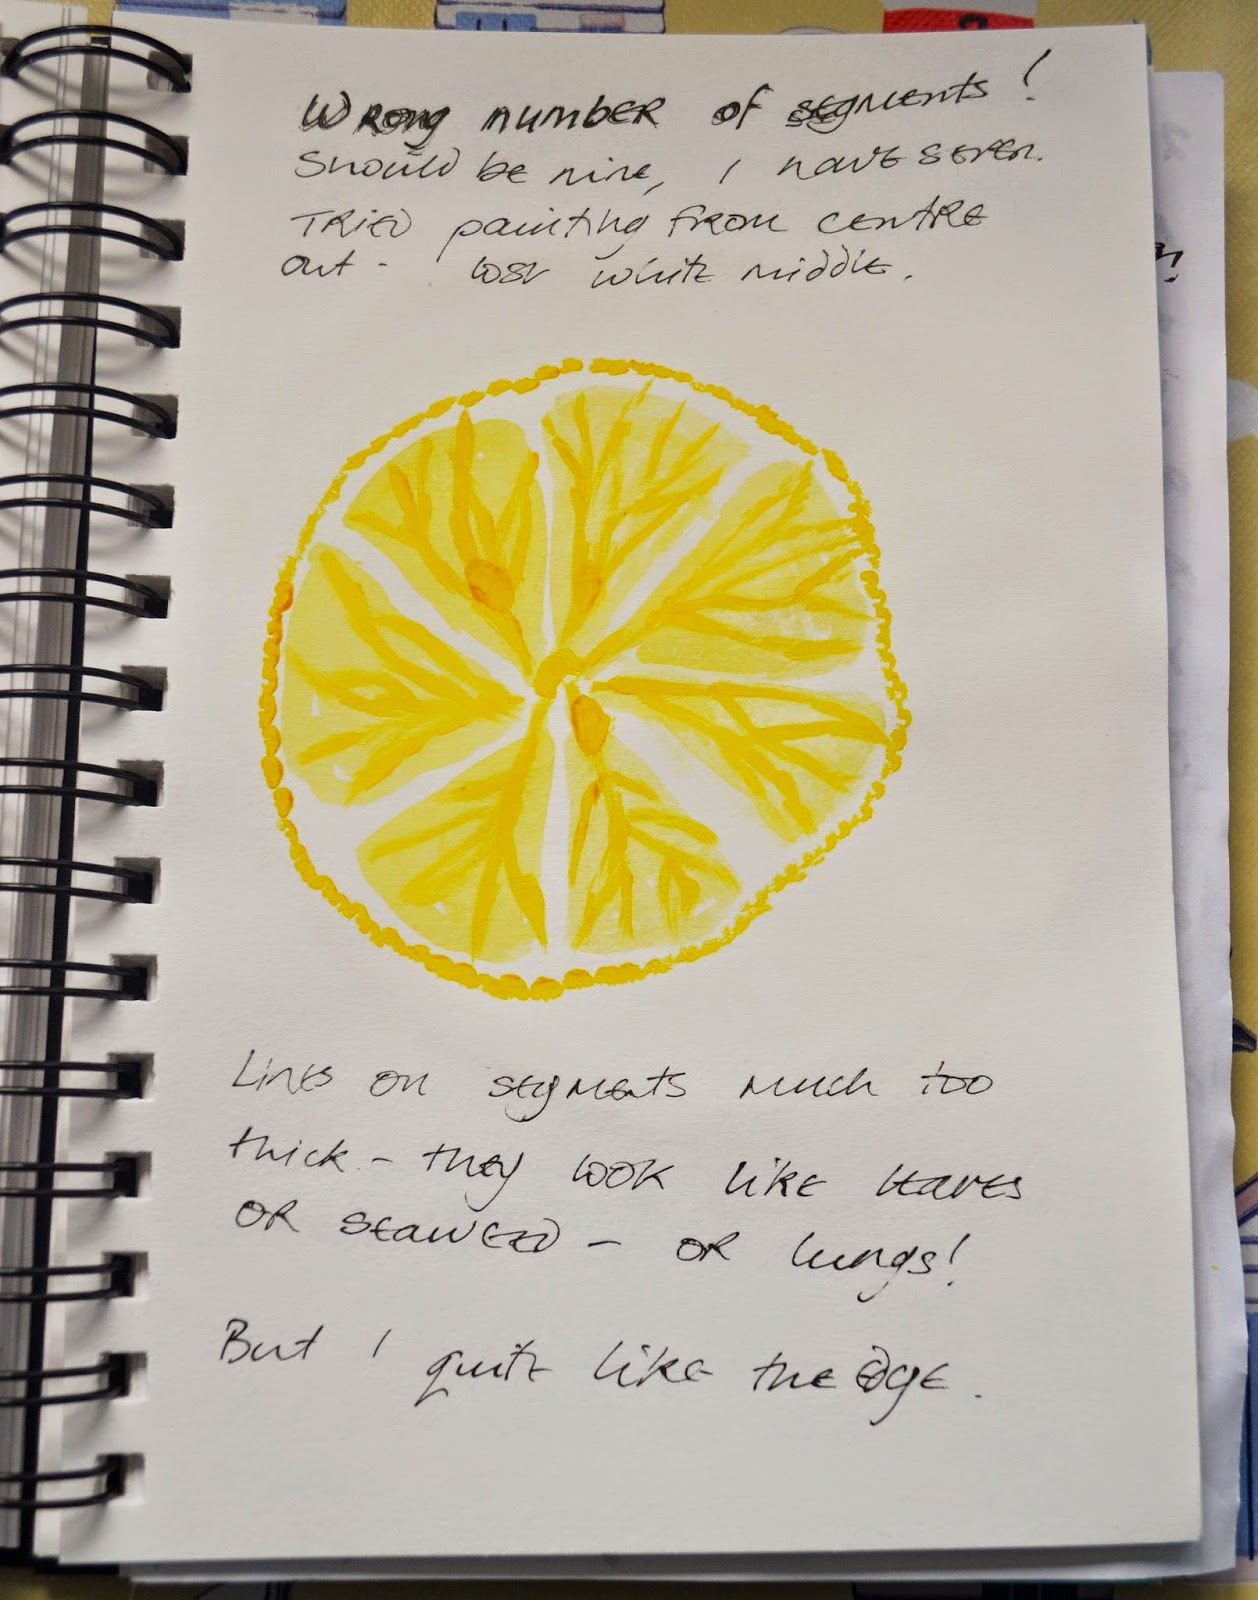 Wrong number of segments!
Should be nine, I have seven.
Tried painting from centre
out - lost white middle.
Lines on segments much too
thick - they look like leaves
or seaweed - or lungs!
But I quite like the edge.